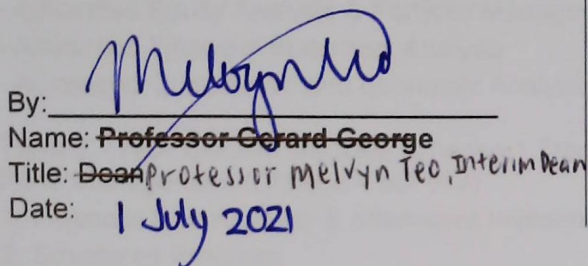 By: Melvyn Teo
Name: Professor Gerard George
Title: Dean Professor Melvyn Teo, Interim Dean
Date: 1 July 2021